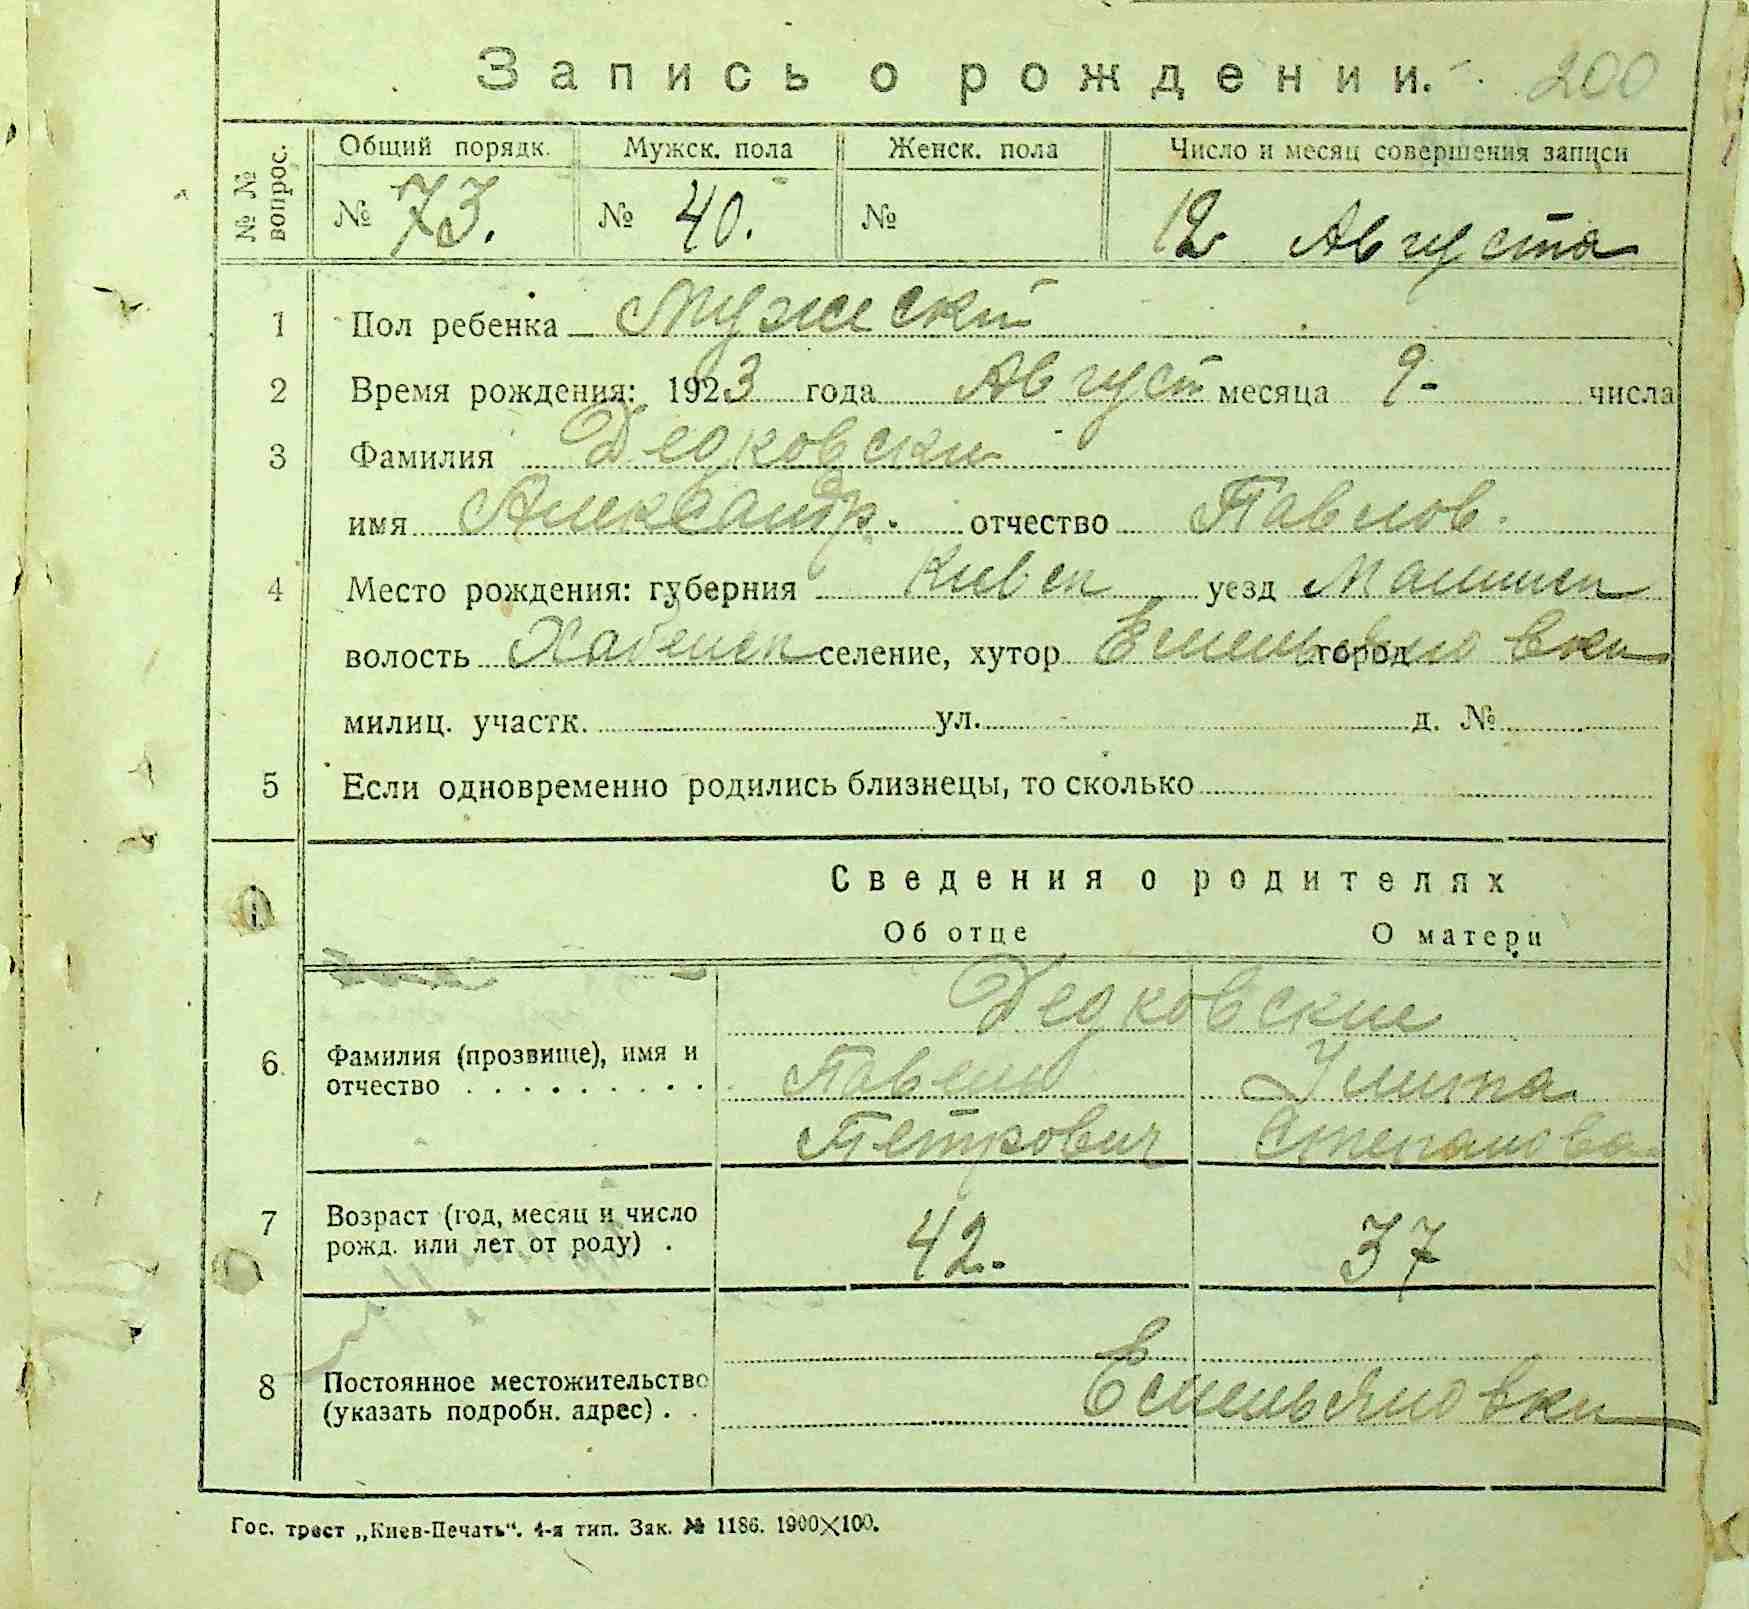 Запись о рождении. 200
№ № вопрос. Общий порядк. Мужск. пола Женск. пола Число и месяц совершения записи
№ 73. № 40. № 12 Августа
1 Пол ребенка Мужеский
2 Время рождения: 1923 года Август месяца 9- числа
3 Фамилия Дедковски
имя Александр. отчество Павлов.
4 Место рождения: губерния Киевск уезд
волость Хабенск селение, хутор Емельяновки город
милиц. участк. ул. д. №
5 Если одновременно родились близнецы, то сколько
Сведения о родителях
Об отце О матери
Дедковские
6 Фамилия (прозвище), имя и отчество . . . . . . . . . Павел Улита
Петрович Степанова
7 Возраст (год, месяц и число рожд. или лет от роду) . 42. 37
8 Постоянное местожительство (указать подробн. адрес) . . Емельяновки
Гос. трест „Киев-Печать“. 4-я тип. Зак. № 1186. 1900×100.